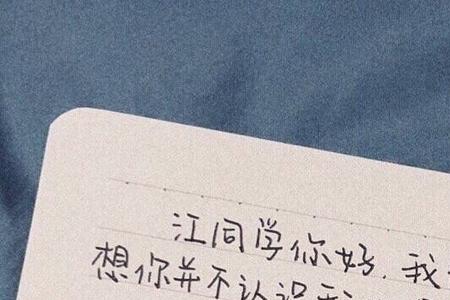 江同学你好,我
想你并不认识我